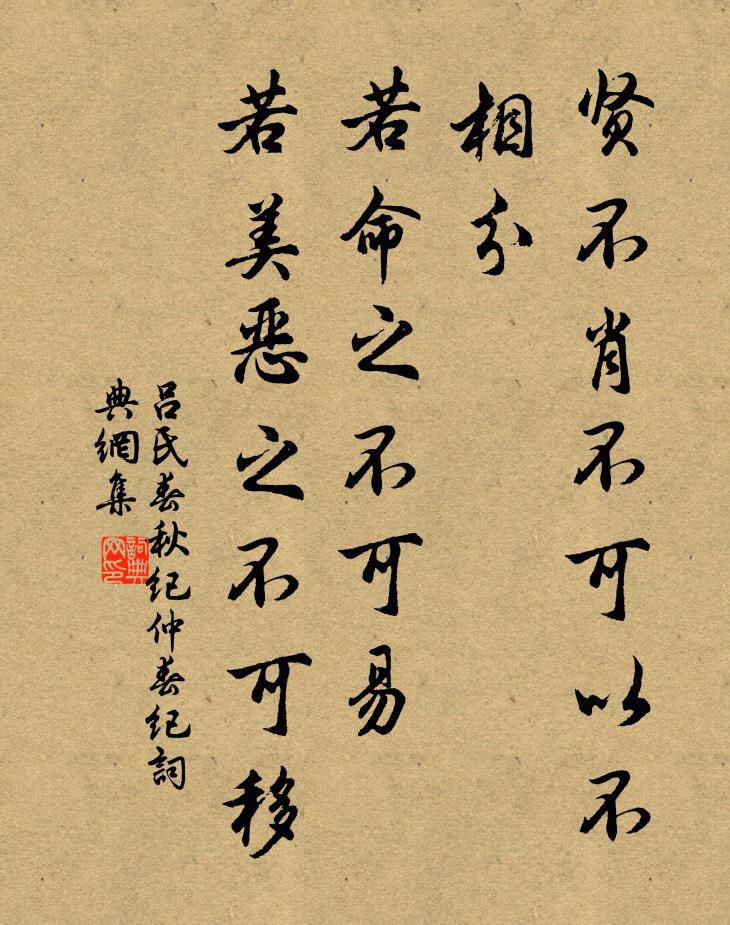 贤不肖不可以不
相分
若命之不可易
若美恶之不可移
吕氏春秋纪仲春纪詞
典網集
詞典
网印